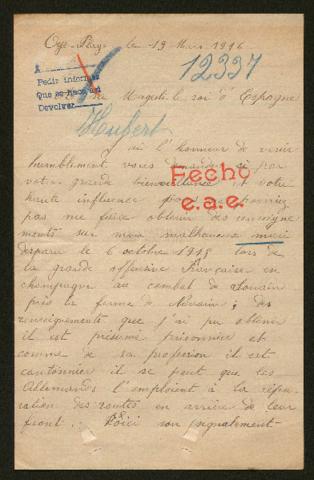 Oye-Plage le 19 Mars 1916
12337
A
Pedir informes
Que se hace así
Devolver
Sa Majesté le roi d'Espagne
Huyghe
J'ai l'honneur de venir
humblement vous demander si par
votre grande bienveillance et votre
haute influence vous ne pourriez
pas me faire obtenir des renseigne
ments sur mon malheureux mari
disparu le 6 octobre 1915 lors de
la grande offensive française en
champagne au combat de Souain
près la ferme de Navarin; des
renseignements que j'ai pu obtenir
il est présumé prisonnier et
comme de sa profession il est
cantonnier il se peut que les
Allemands l'emploient à la répa
ration des routes en arrière de leur
front. Voici son signalement
Fecho
e.a.e.